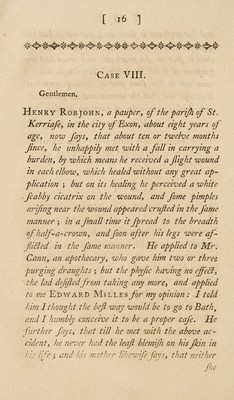 [ 16 ]
CASE VIII.
Gentlemen,
HENRY ROBJOHN, a pauper, of the pariſh of St.
Kerriaſe, in the city of Exon, about eight years of
age, now ſays, that about ten or twelve months
ſince, he unhappily met with a fall in carrying a
burden, by which means he received a ſlight wound
in each elbow, which healed without any great ap-
plication; but on its healing he perceived a white
ſcabby cicatrix on the wound, and ſome pimples
ariſing near the wound appeared cruſted in the ſame
manner; in a ſmall time it ſpread to the breadth
of half-a-crown, and ſoon after his legs were af-
flicted in the ſame manner. He applied to Mr.
Cann, an apothecary, who gave him two or three
purging draughts; but the phyſic having no effect,
the lad deſiſted from taking any more, and applied
to me EDWARD MILLES for my opinion: I told
him I thought the beſt way would be to go to Bath,
and I humbly conceive it to be a proper caſe. He
further ſays, that till he met with the above ac-
cident, he never had the leaſt blemiſh on his ſkin in
his life; and his mother likewiſe ſays, that neither
ſhe